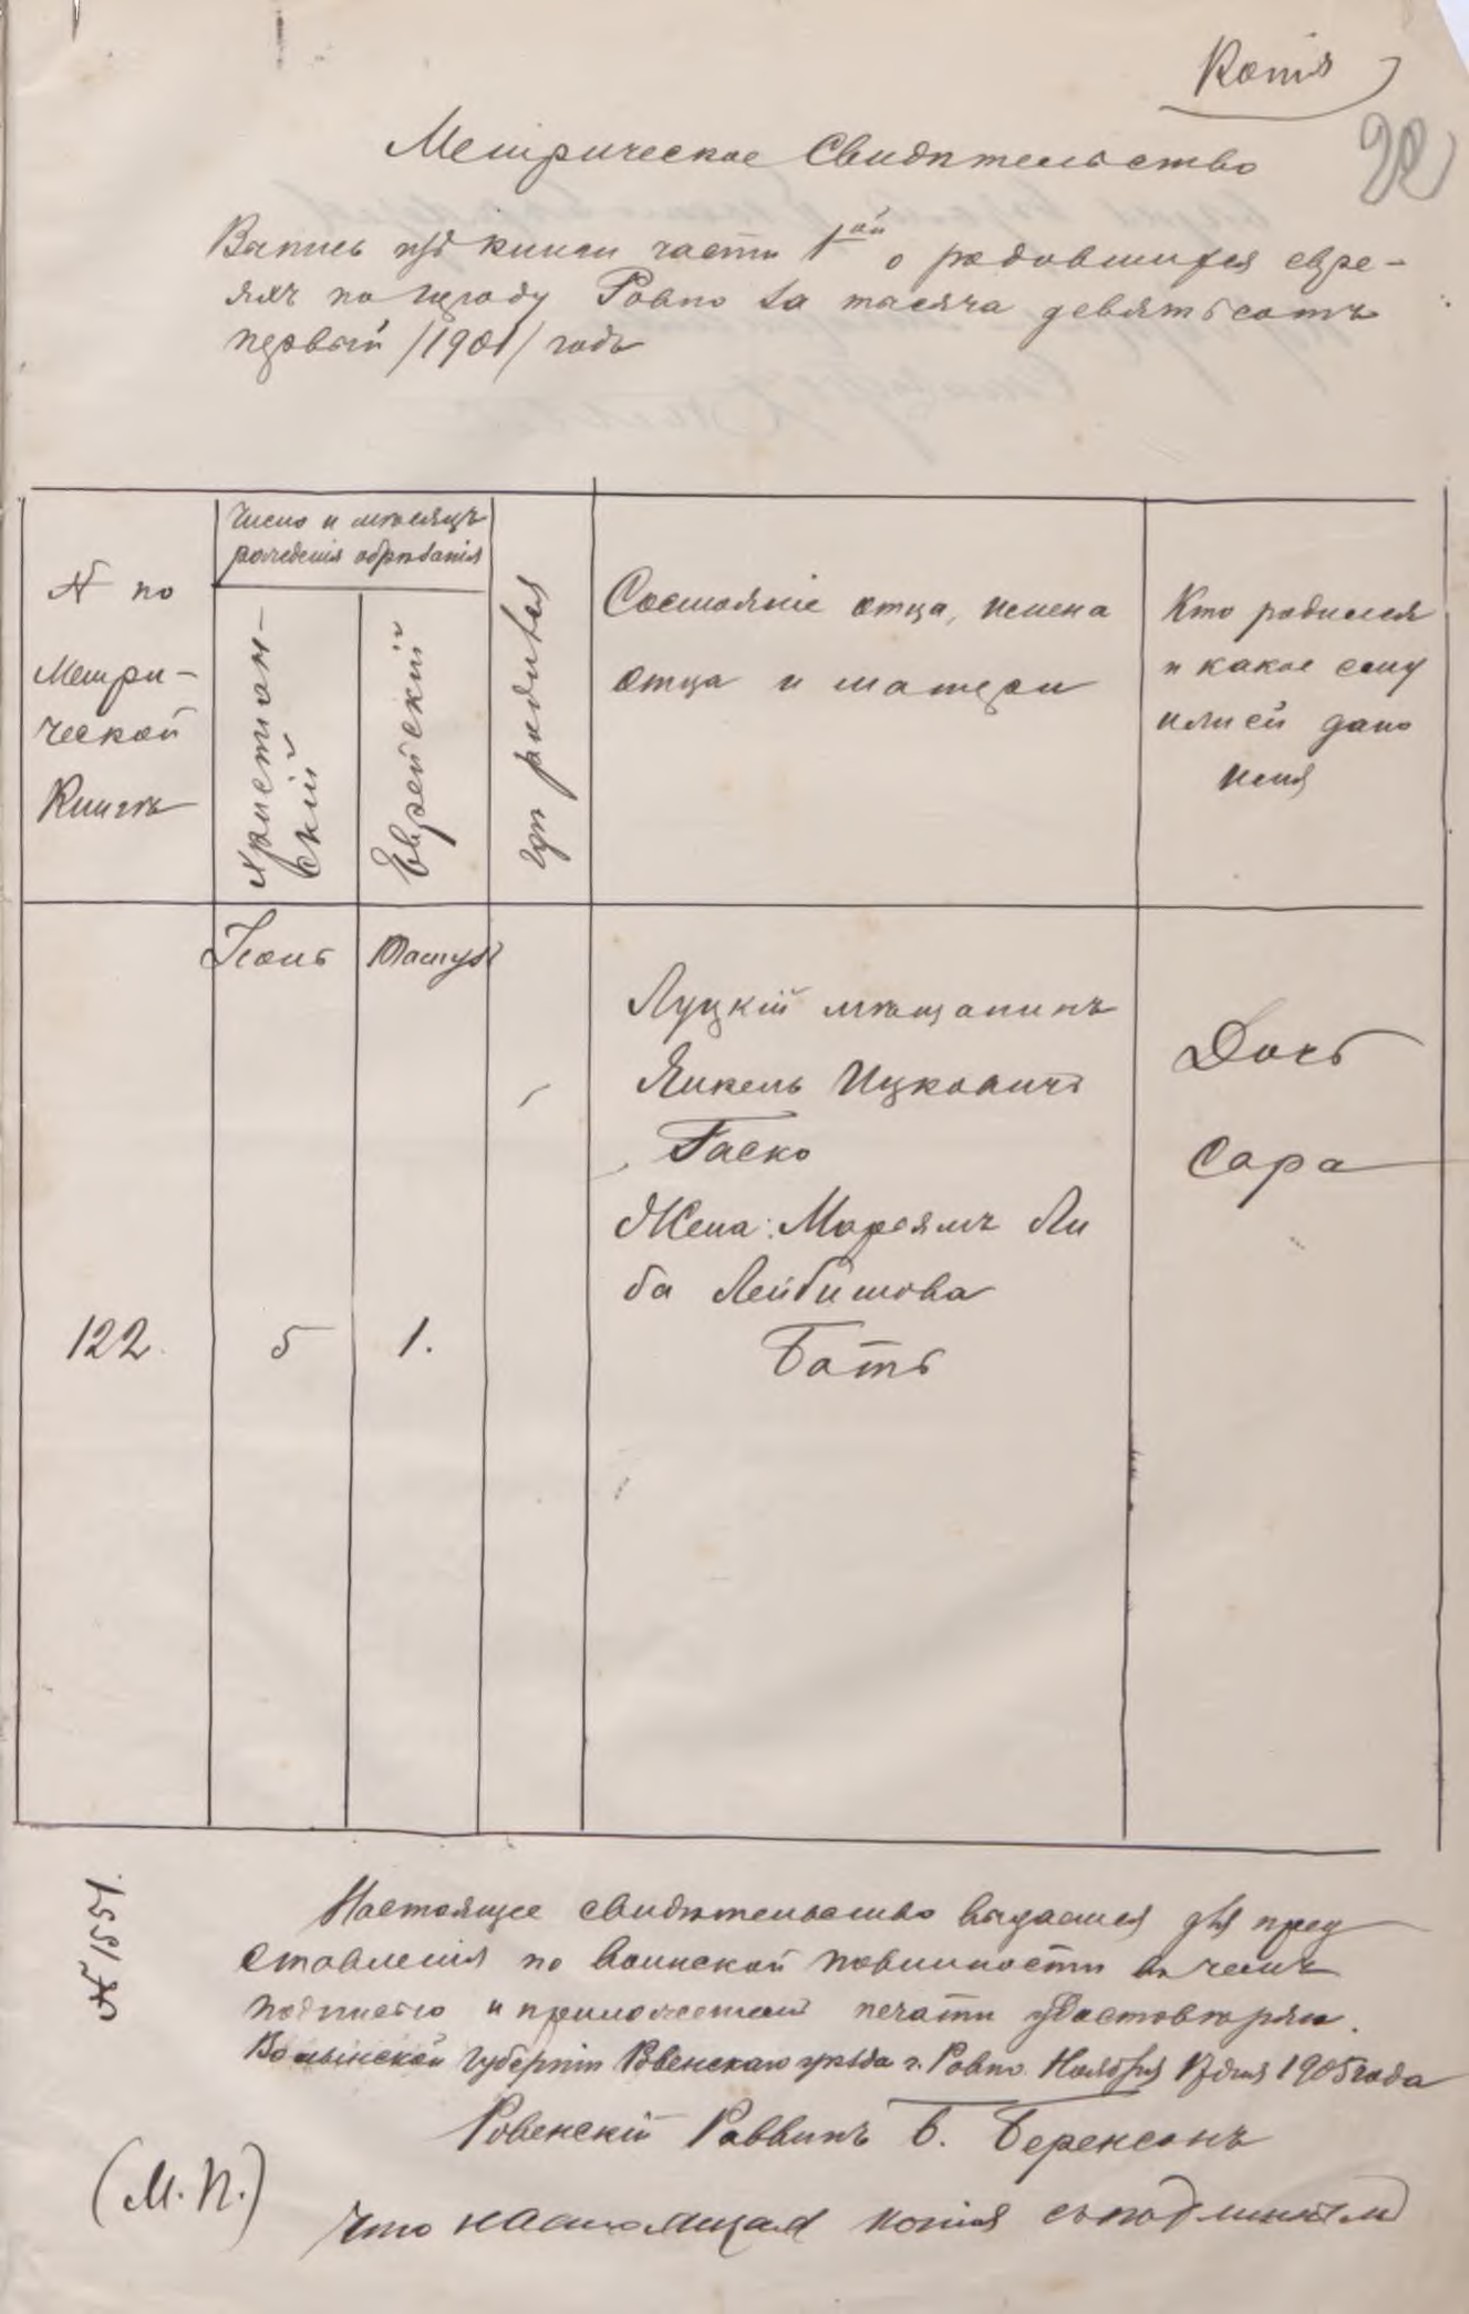 Копія
22
Метрическое Свидѣтельство
Выпись изъ книги части 1ой о родившихся евре-
яхъ по городу Ровно за тысяча девятьсотъ
первый /1901/ годъ
Число и мѣсяцъ
рожденія обрѣзанія
№ по
Метри-
ческой
Книгѣ
Христиан-
скій
Еврейскій
гдѣ родился
Состояніе отца, имена
отца и матери
Кто родился
и какое ему
или ей дано
имя
Іюнь
122.
5
1.
Луцкій мѣщанинъ
Янкель Ицковичъ
Гаско
Жена: Маріямъ Ли
ба Лейбишова
Бать
Дочь
Сара
№ 1551.
Настоящее свидѣтельство выдается для пред
ставленія по воинской повинности въ чемъ
подписью и приложеніемъ печати удостовѣряю.
Волынской Губерніи Ровенскаго уѣзда г. Ровно Ноября 17 дня 1905 года
Ровенскій Раввинъ Б. Беренсонъ
(М.П.)
Что настоящая копія съ подлиннымъ